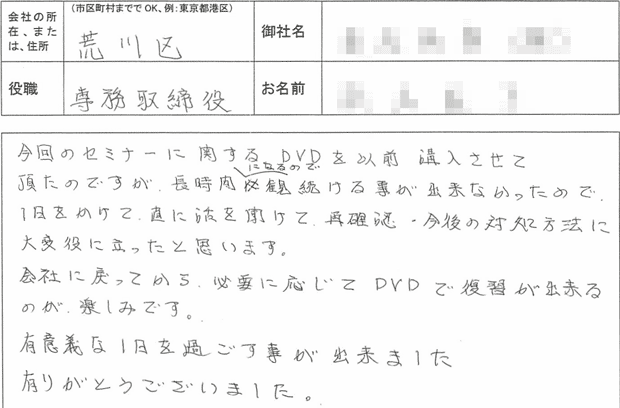 会社の所在、または、住所
(市区町村まででOK、例:東京都港区)
荒川区
御社名
役職
専務取締役
お名前
今回のセミナーに関するDVDを以前 購入させて
頂たのですが、長時間になるので観続ける事が出来なかったので、
1日をかけて、直に話を聞けて、再確認・今後の対処方法に
大変役に立ったと思います。
会社に戻ってから、必要に応じてDVDで復習が出来る
のが、楽しみです。
有意義な1日を過ごす事が出来ました
有りがとうございました。